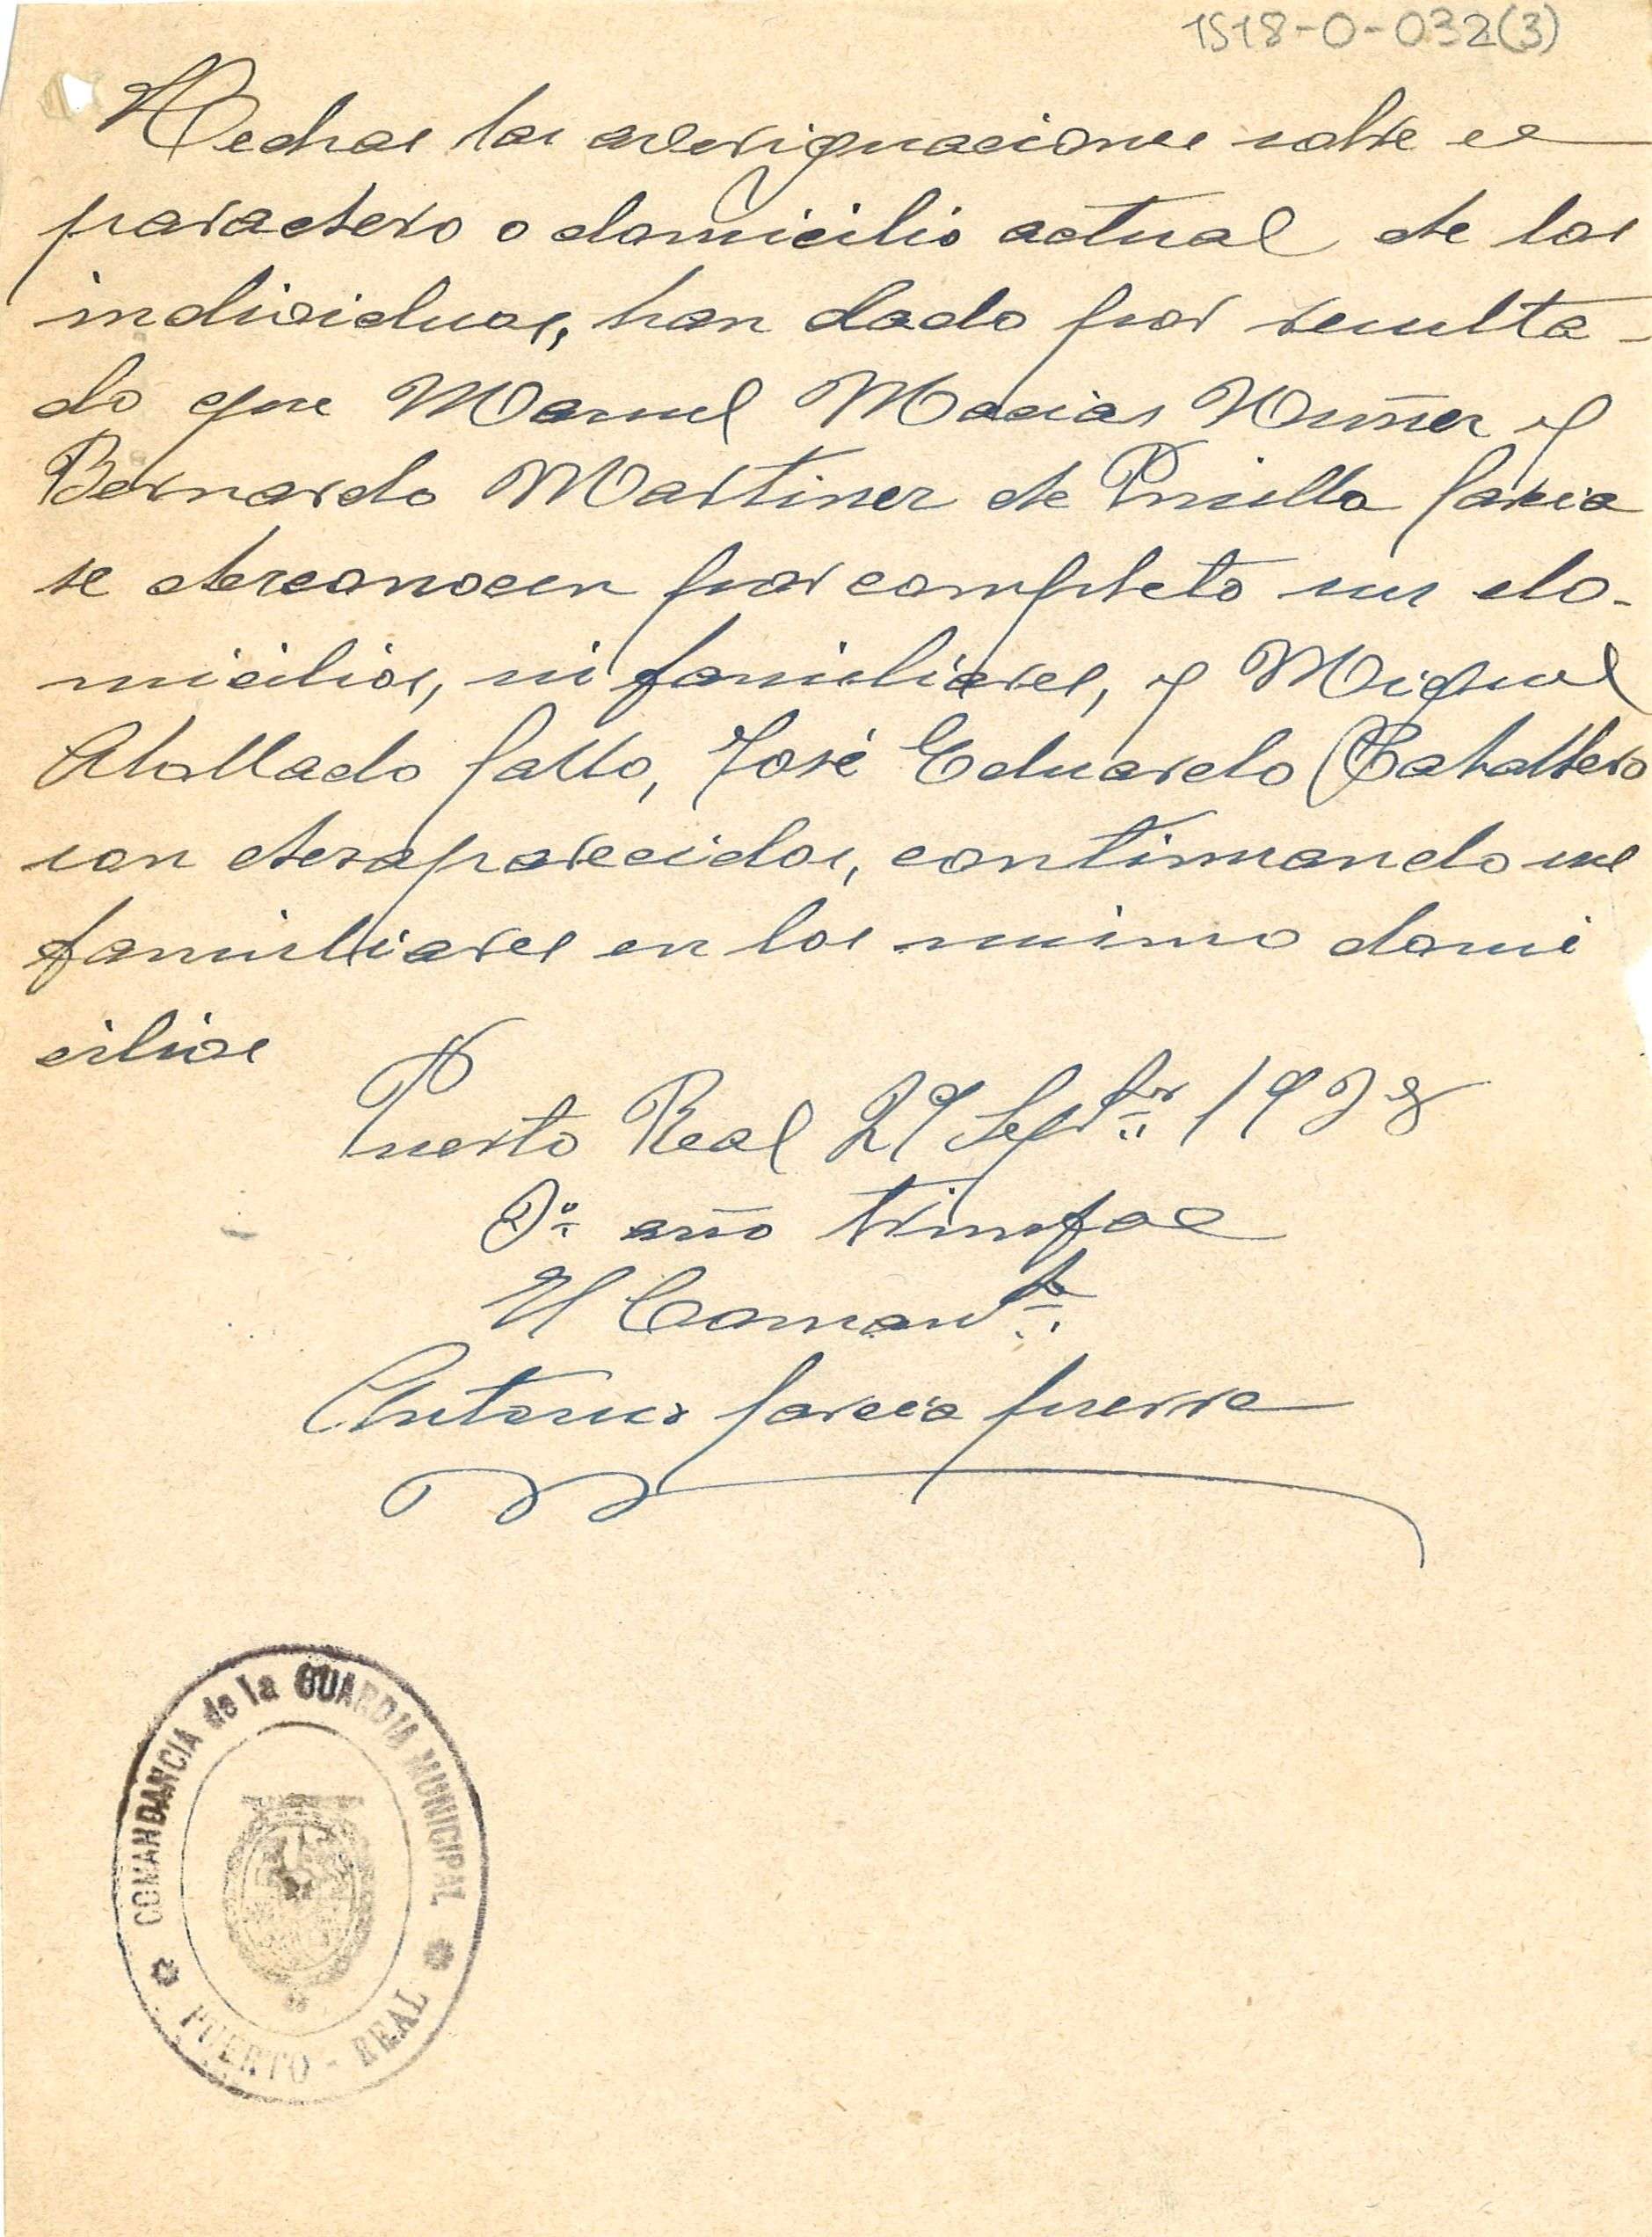 1518-0-032(3)
Hechas las averiguaciones sobre el
paradero o domicilio actual de los
individuos, han dado por resulta-
do que Manuel Macias Nuñez y
Bernardo Martinez de Pinillo Garcia
se desconocen por completo sus do-
micilios, ni familiares, y Miguel
Gallo, José Eduardo Caballero
son desaparecidos, continuando sus
familiares en los mismo domi
cilios
Puerto Real 29 Sepbre 1938
3º año triunfal
El Comante
Antonio Garcia Guerra
COMANDANCIA de la GUARDIA MUNICIPAL
PUERTO - REAL